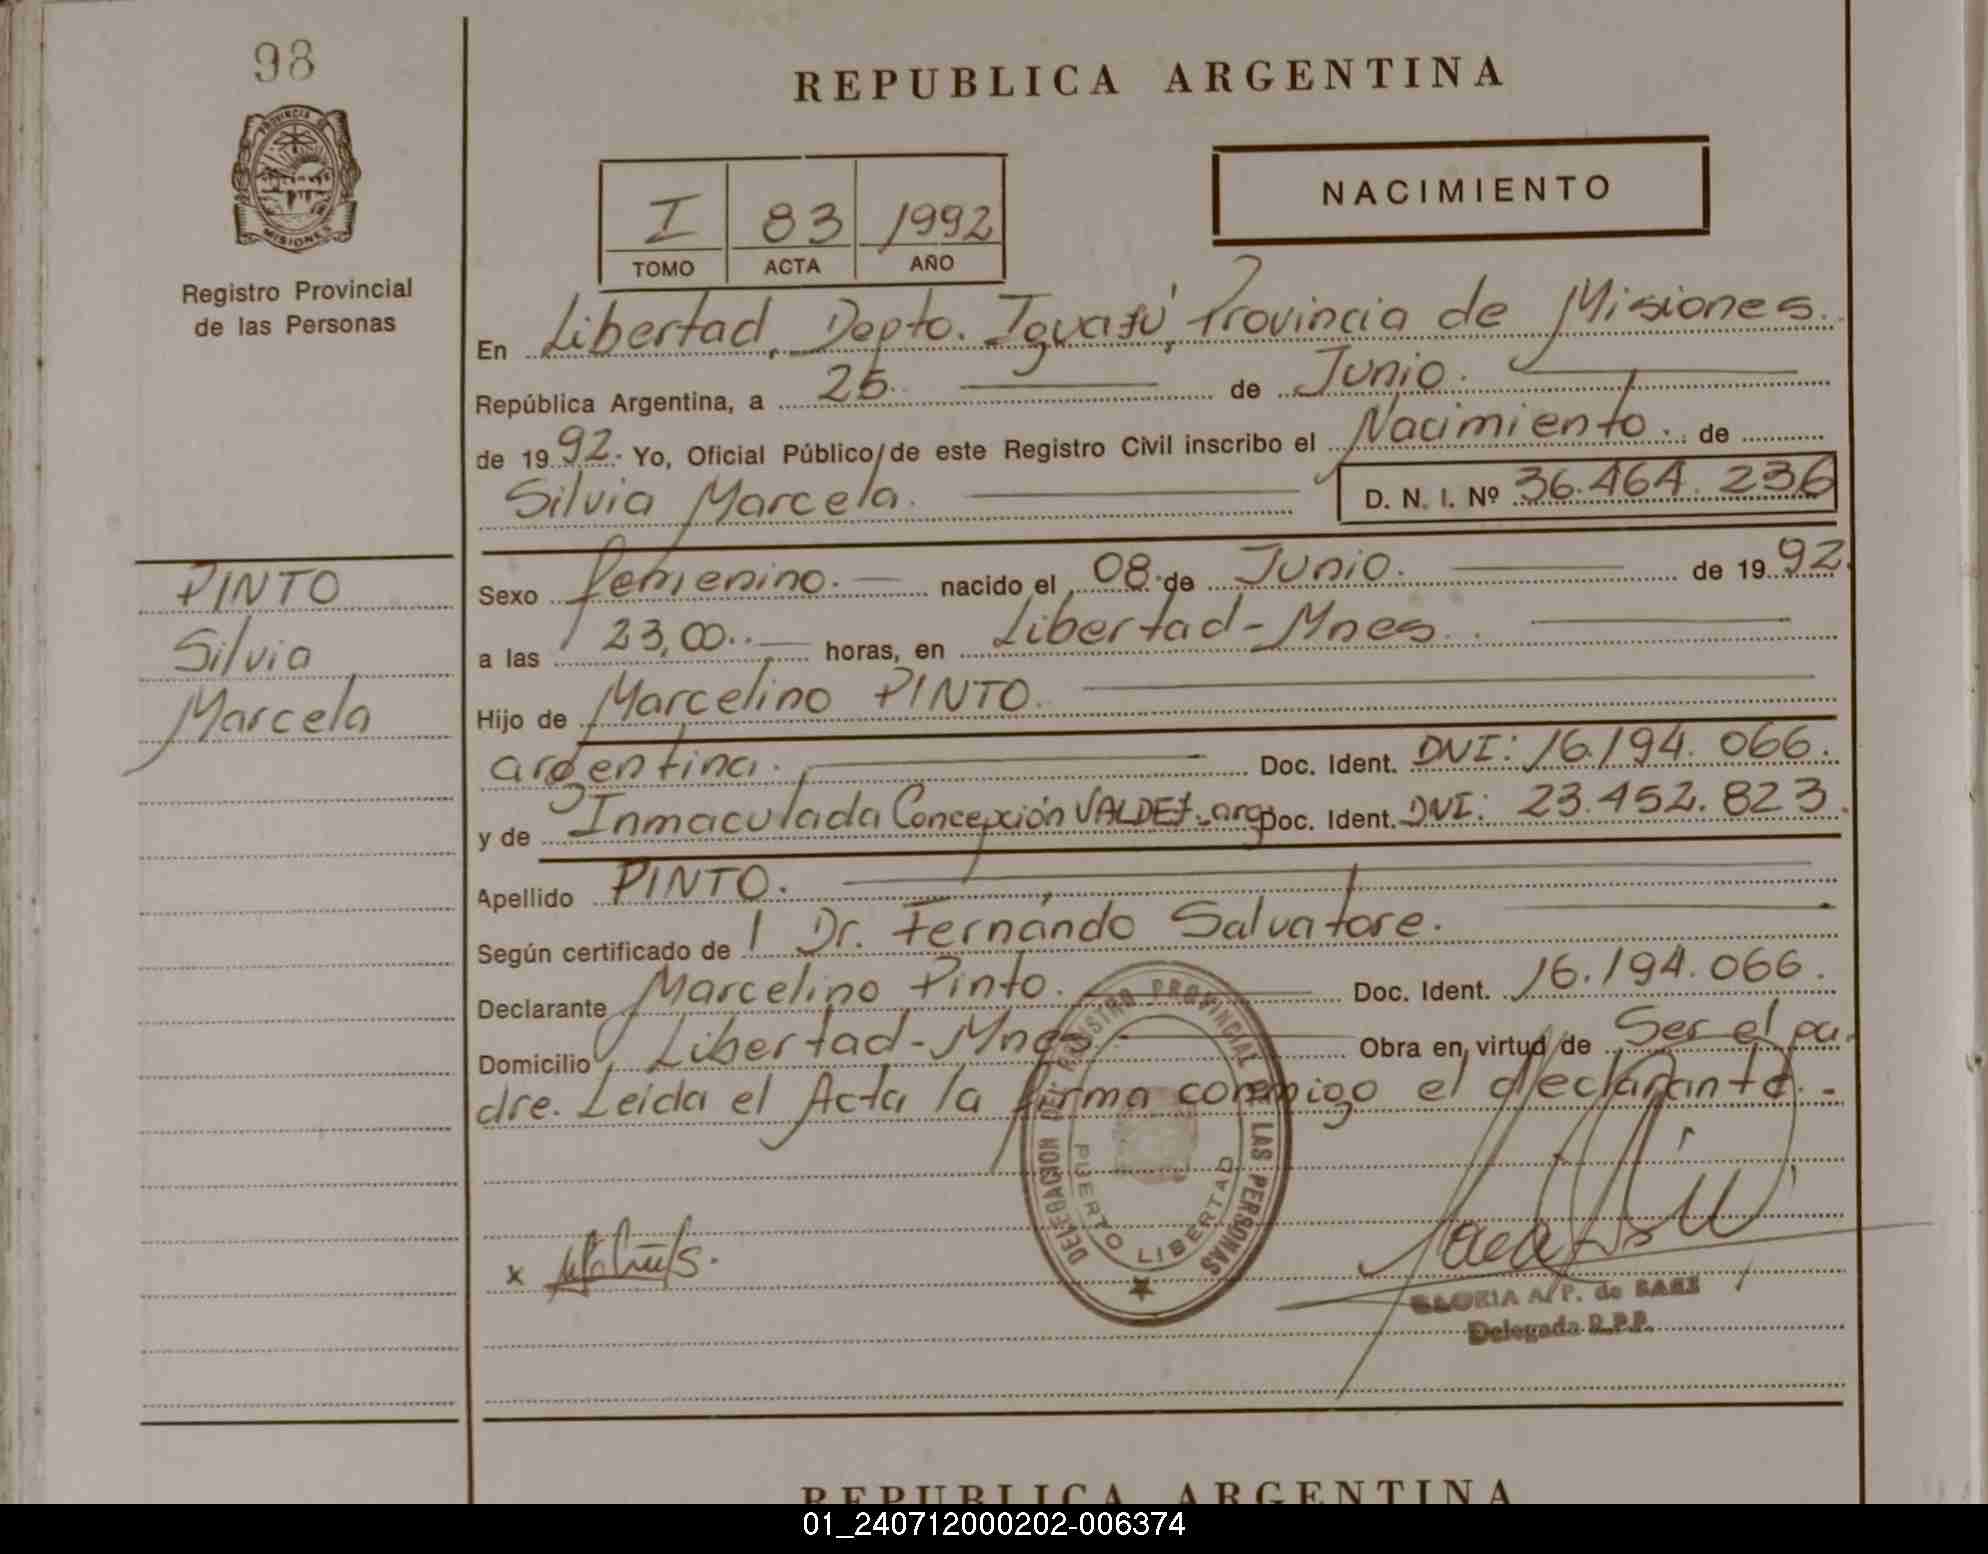 98
PROVINCIA DE
MISIONES
Registro Provincial
de las Personas
REPUBLICA ARGENTINA
I 83 1992
TOMO ACTA AÑO
NACIMIENTO
En Libertad, Depto. Iguazú, Provincia de Misiones.
República Argentina, a 25. de Junio.
de 1992. Yo, Oficial Público de este Registro Civil inscribo el Nacimiento. de
Silvia Marcela. D. N. I. Nº 36.464.236
PINTO
Silvia
Marcela
Sexo femenino. nacido el 08. de Junio. de 1992.
a las 23,00.. horas, en Libertad-Mnes.
Hijo de Marcelino PINTO.
argentina. Doc. Ident. DNI: 16.194.066.
y de Inmaculada Concepción VALDEZ-arg. Doc. Ident. DNI: 23.452.823.
Apellido PINTO.
Según certificado de Dr. Fernándo Salvatore.
Declarante Marcelino Pinto. Doc. Ident. 16.194.066.
Domicilio Libertad-Mnes Obra en virtud de Ser el pa-
dre. Leida el Acta la firma conmigo el declarante.-
DELEGACION DEL REGISTRO PROVINCIAL DE LAS PERSONAS
PUERTO LIBERTAD
x
GLORIA A. P. de
Delegada R.P.P.
REPUBLICA ARGENTINA
01_240712000202-006374